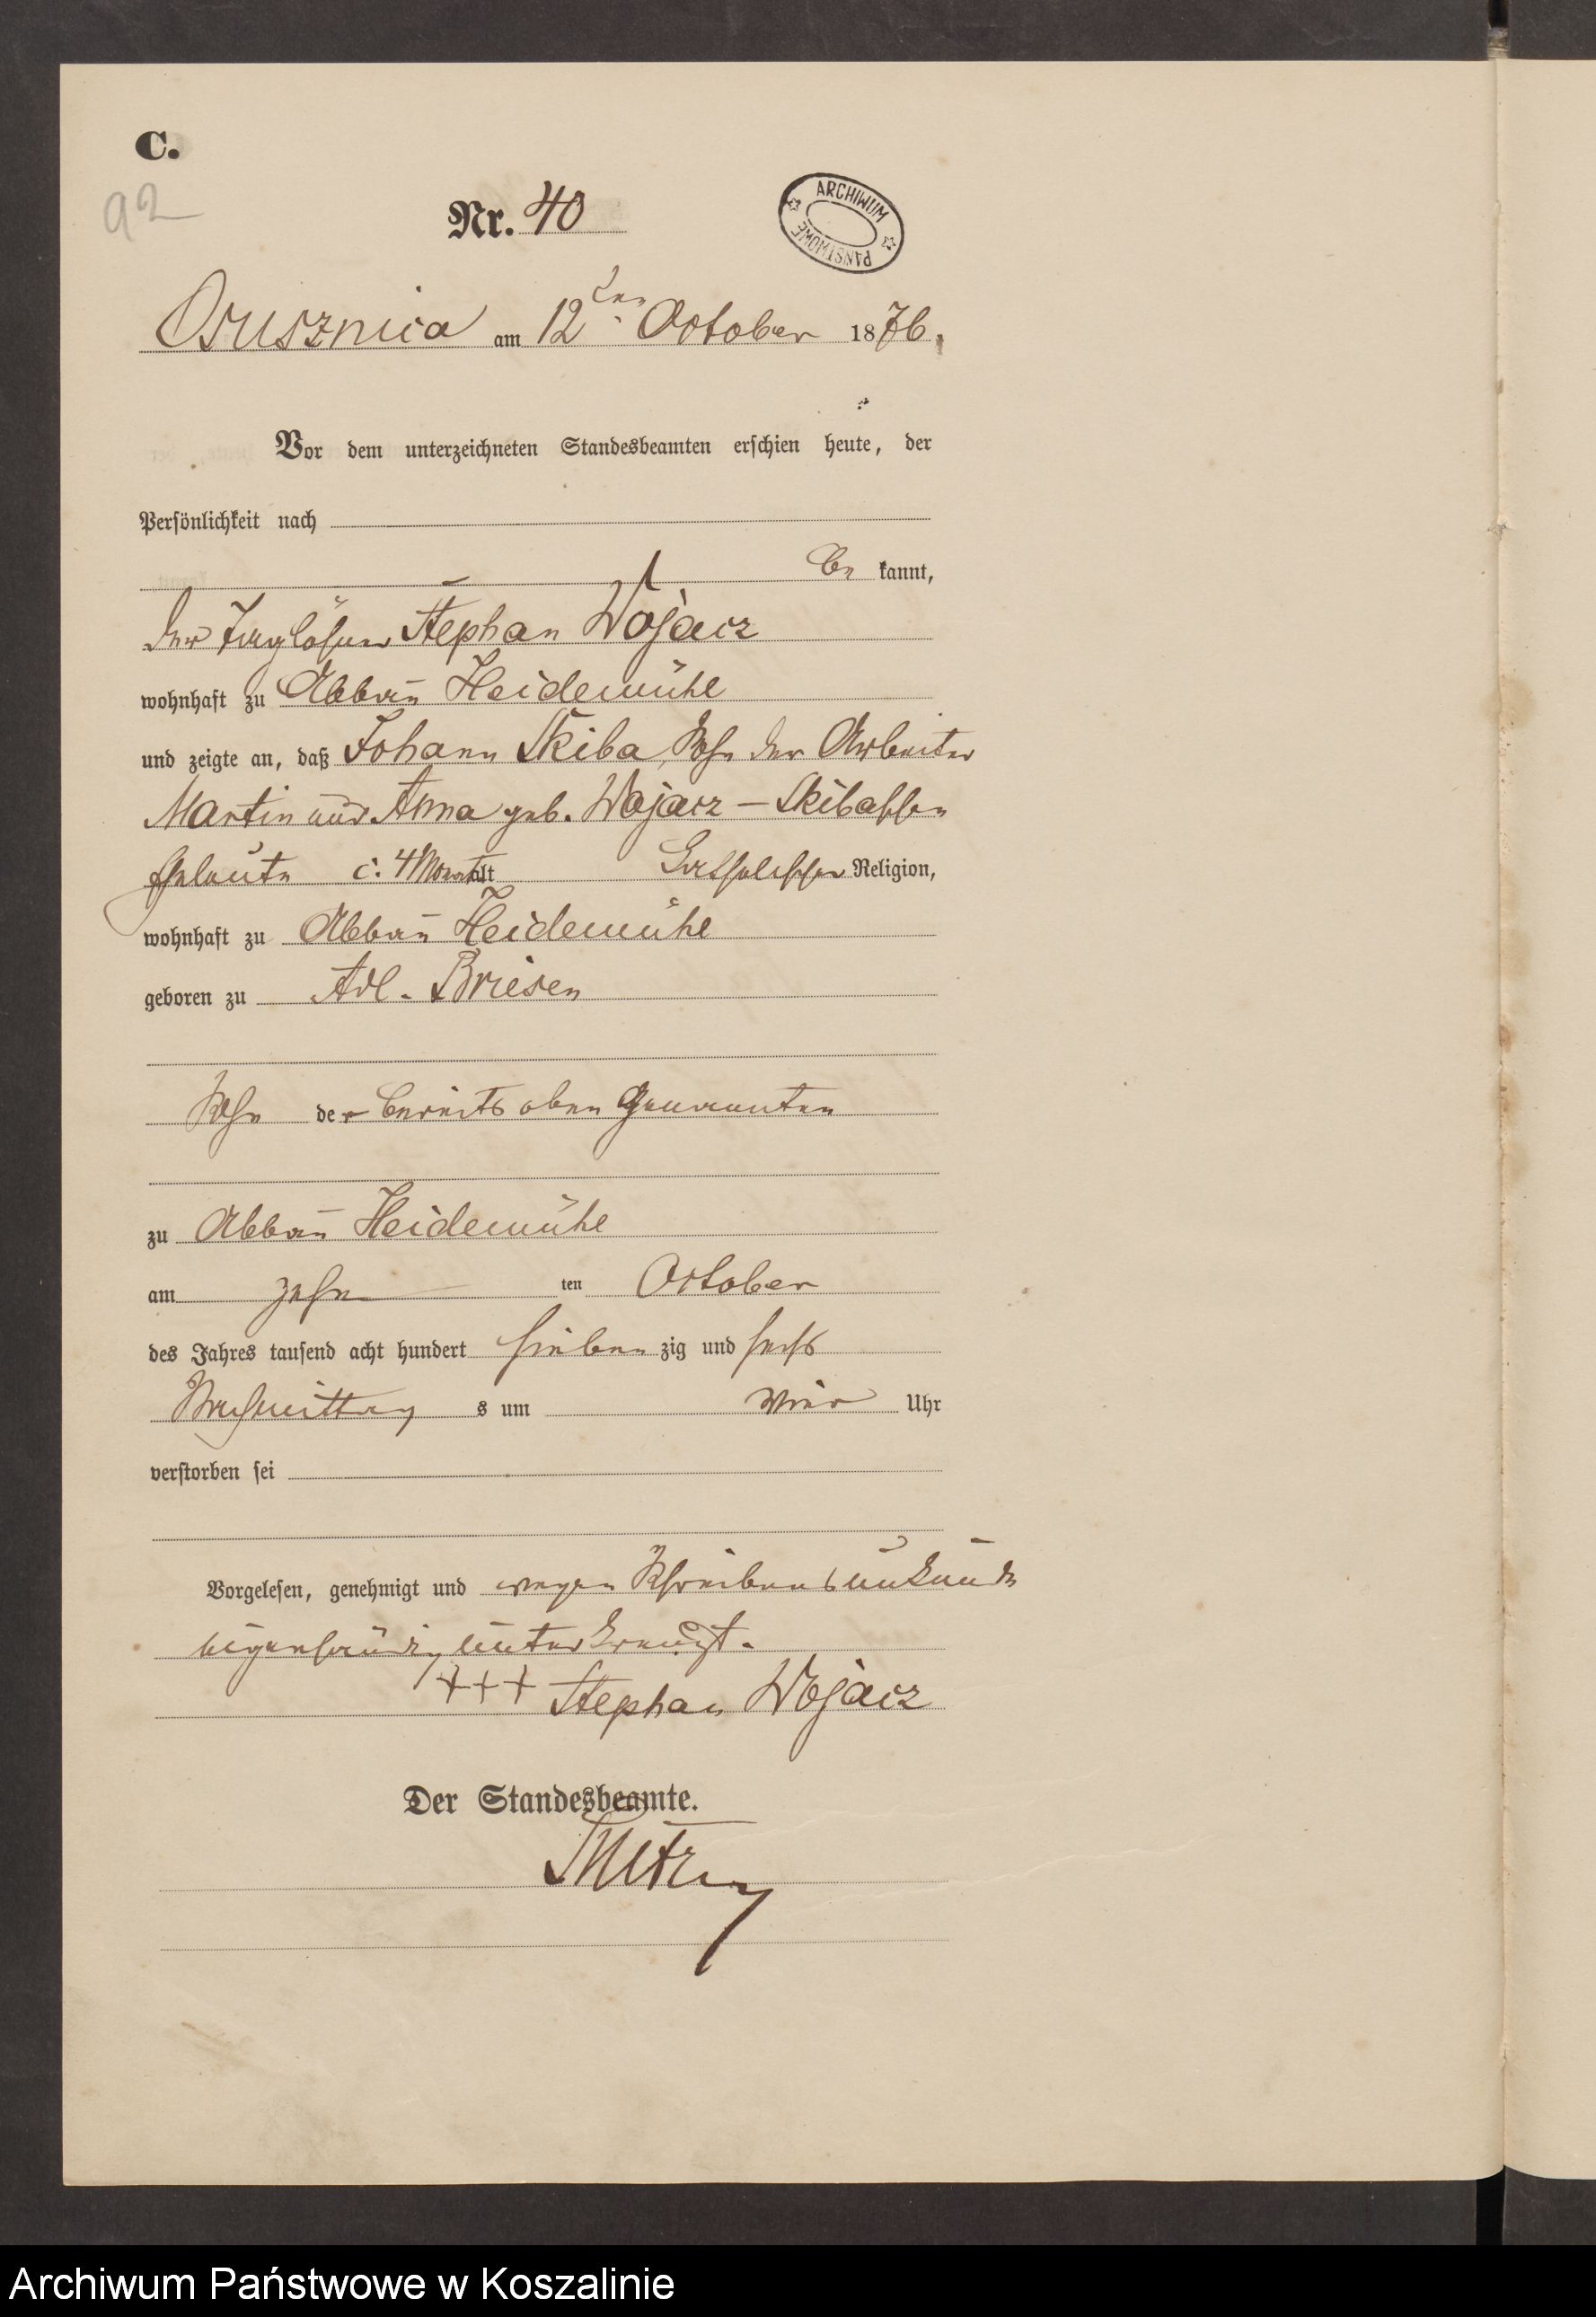 C.
92
Nr. 40
ARCHIWUM PAŃSTWOWE
Osusznica am 12ten October 1876.
Vor dem unterzeichneten Standesbeamten erschien heute, der
Persönlichkeit nach
be kannt,
der Taglöhner Stephan Wojacz
wohnhaft zu Abbau Heidemühl
und zeigte an, daß Johann Skiba, Sohn der Arbeiter
Martin und Anna geb. Wojacz – Skibaschen
Eheleute c: 4 Monat alt Katholischer Religion,
wohnhaft zu Abbau Heidemühl
geboren zu Adl. Briesen
Sohn der bereits oben Genannten
zu Abbau Heidemühl
am zehn ten October
des Jahres tausend acht hundert sieben zig und sechs
Nachmittag s um vier Uhr
verstorben sei
Vorgelesen, genehmigt und wegen Schreibensunkunde
eigenhändig unterkreuzt.
+++ Stephan Wojacz
Der Standesbeamte.
Archiwum Państwowe w Koszalinie